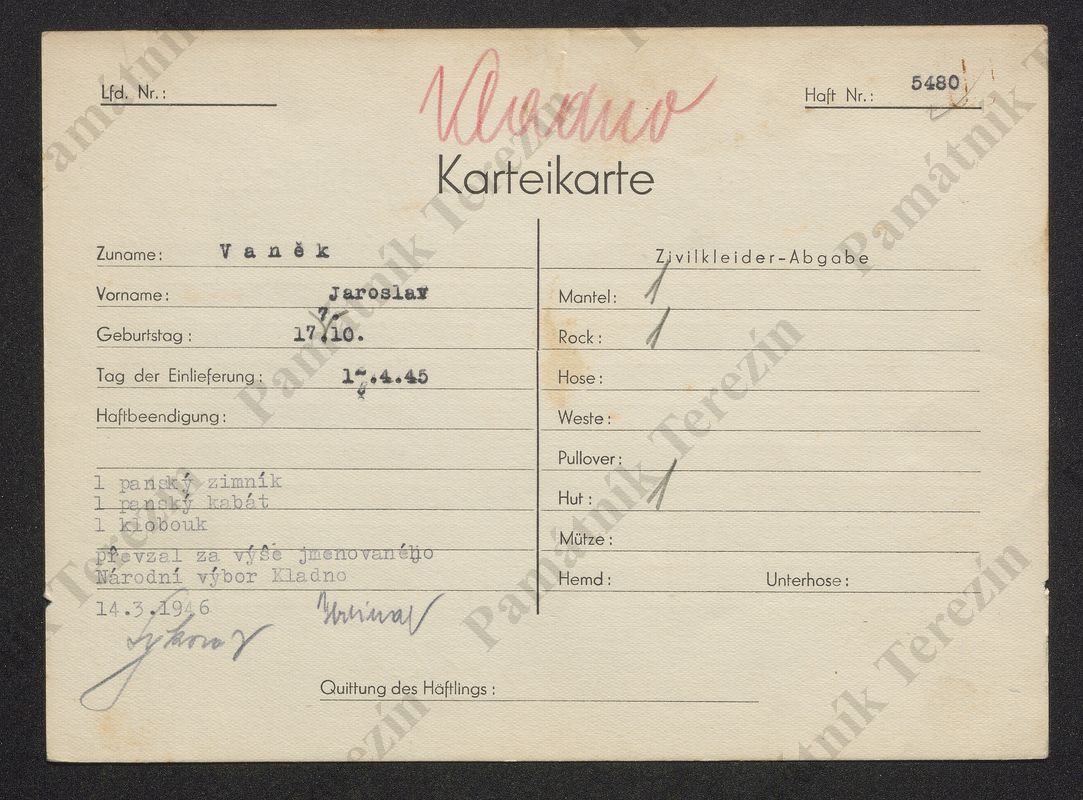 Kladno
Lfd. Nr.:
Haft Nr.: 5480
Karteikarte
Zuname: Vaněk
Vorname: Jaroslav
7.
Geburtstag: 17.10.
Tag der Einlieferung: .4.45
Haftbeendigung:
1 panský zimník
1 panský kabát
1 klobouk
převzal za výše jmenovaného
Národní výbor Kladno
14.3.1946
Zivilkleider-Abgabe
Mantel: 1
Rock: 1
Hose:
Weste:
Pullover:
Hut: 1
Mütze:
Hemd: Unterhose:
Quittung des Häftlings:
Památník Terezín
Památník Terezín
Památník Terezín
Památník Terezín